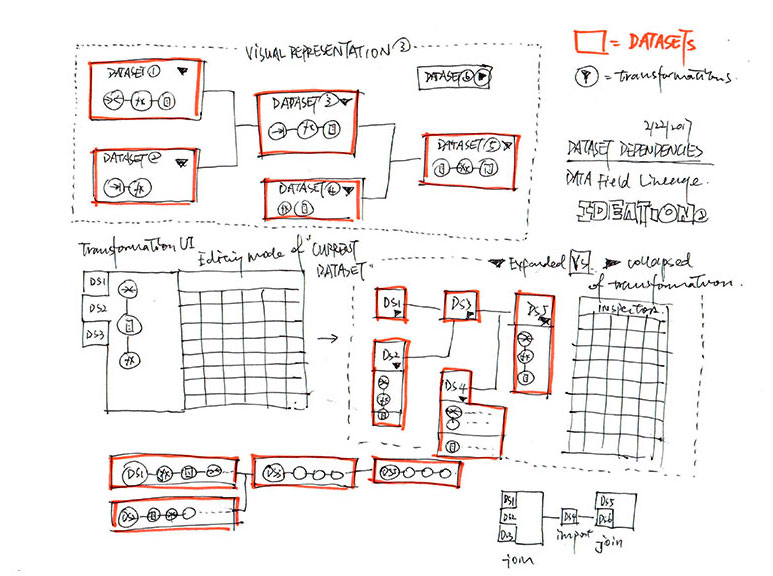 VISUAL REPRESENTATION ③
= DATASETS
= transformations.
DATASET ①
DATASET ②
DATASET ③
DATASET ④
DATASET ⑤
DATASET ⑥
2/22/2017
DATASET DEPENDENCIES
DATA Field Lineage.
IDEATION②
Transformation UI
Editing mode of "CURRENT
DATASET"
Expanded VS. collapsed
of transformation.
DS1
DS2
DS3
fx
DS1
DS2
DS3
DS4
DS5
inspector.
DS1
DS3
DS5
DS2
DS1
DS2
DS3
join
DS4
import
DS5
DS6
join